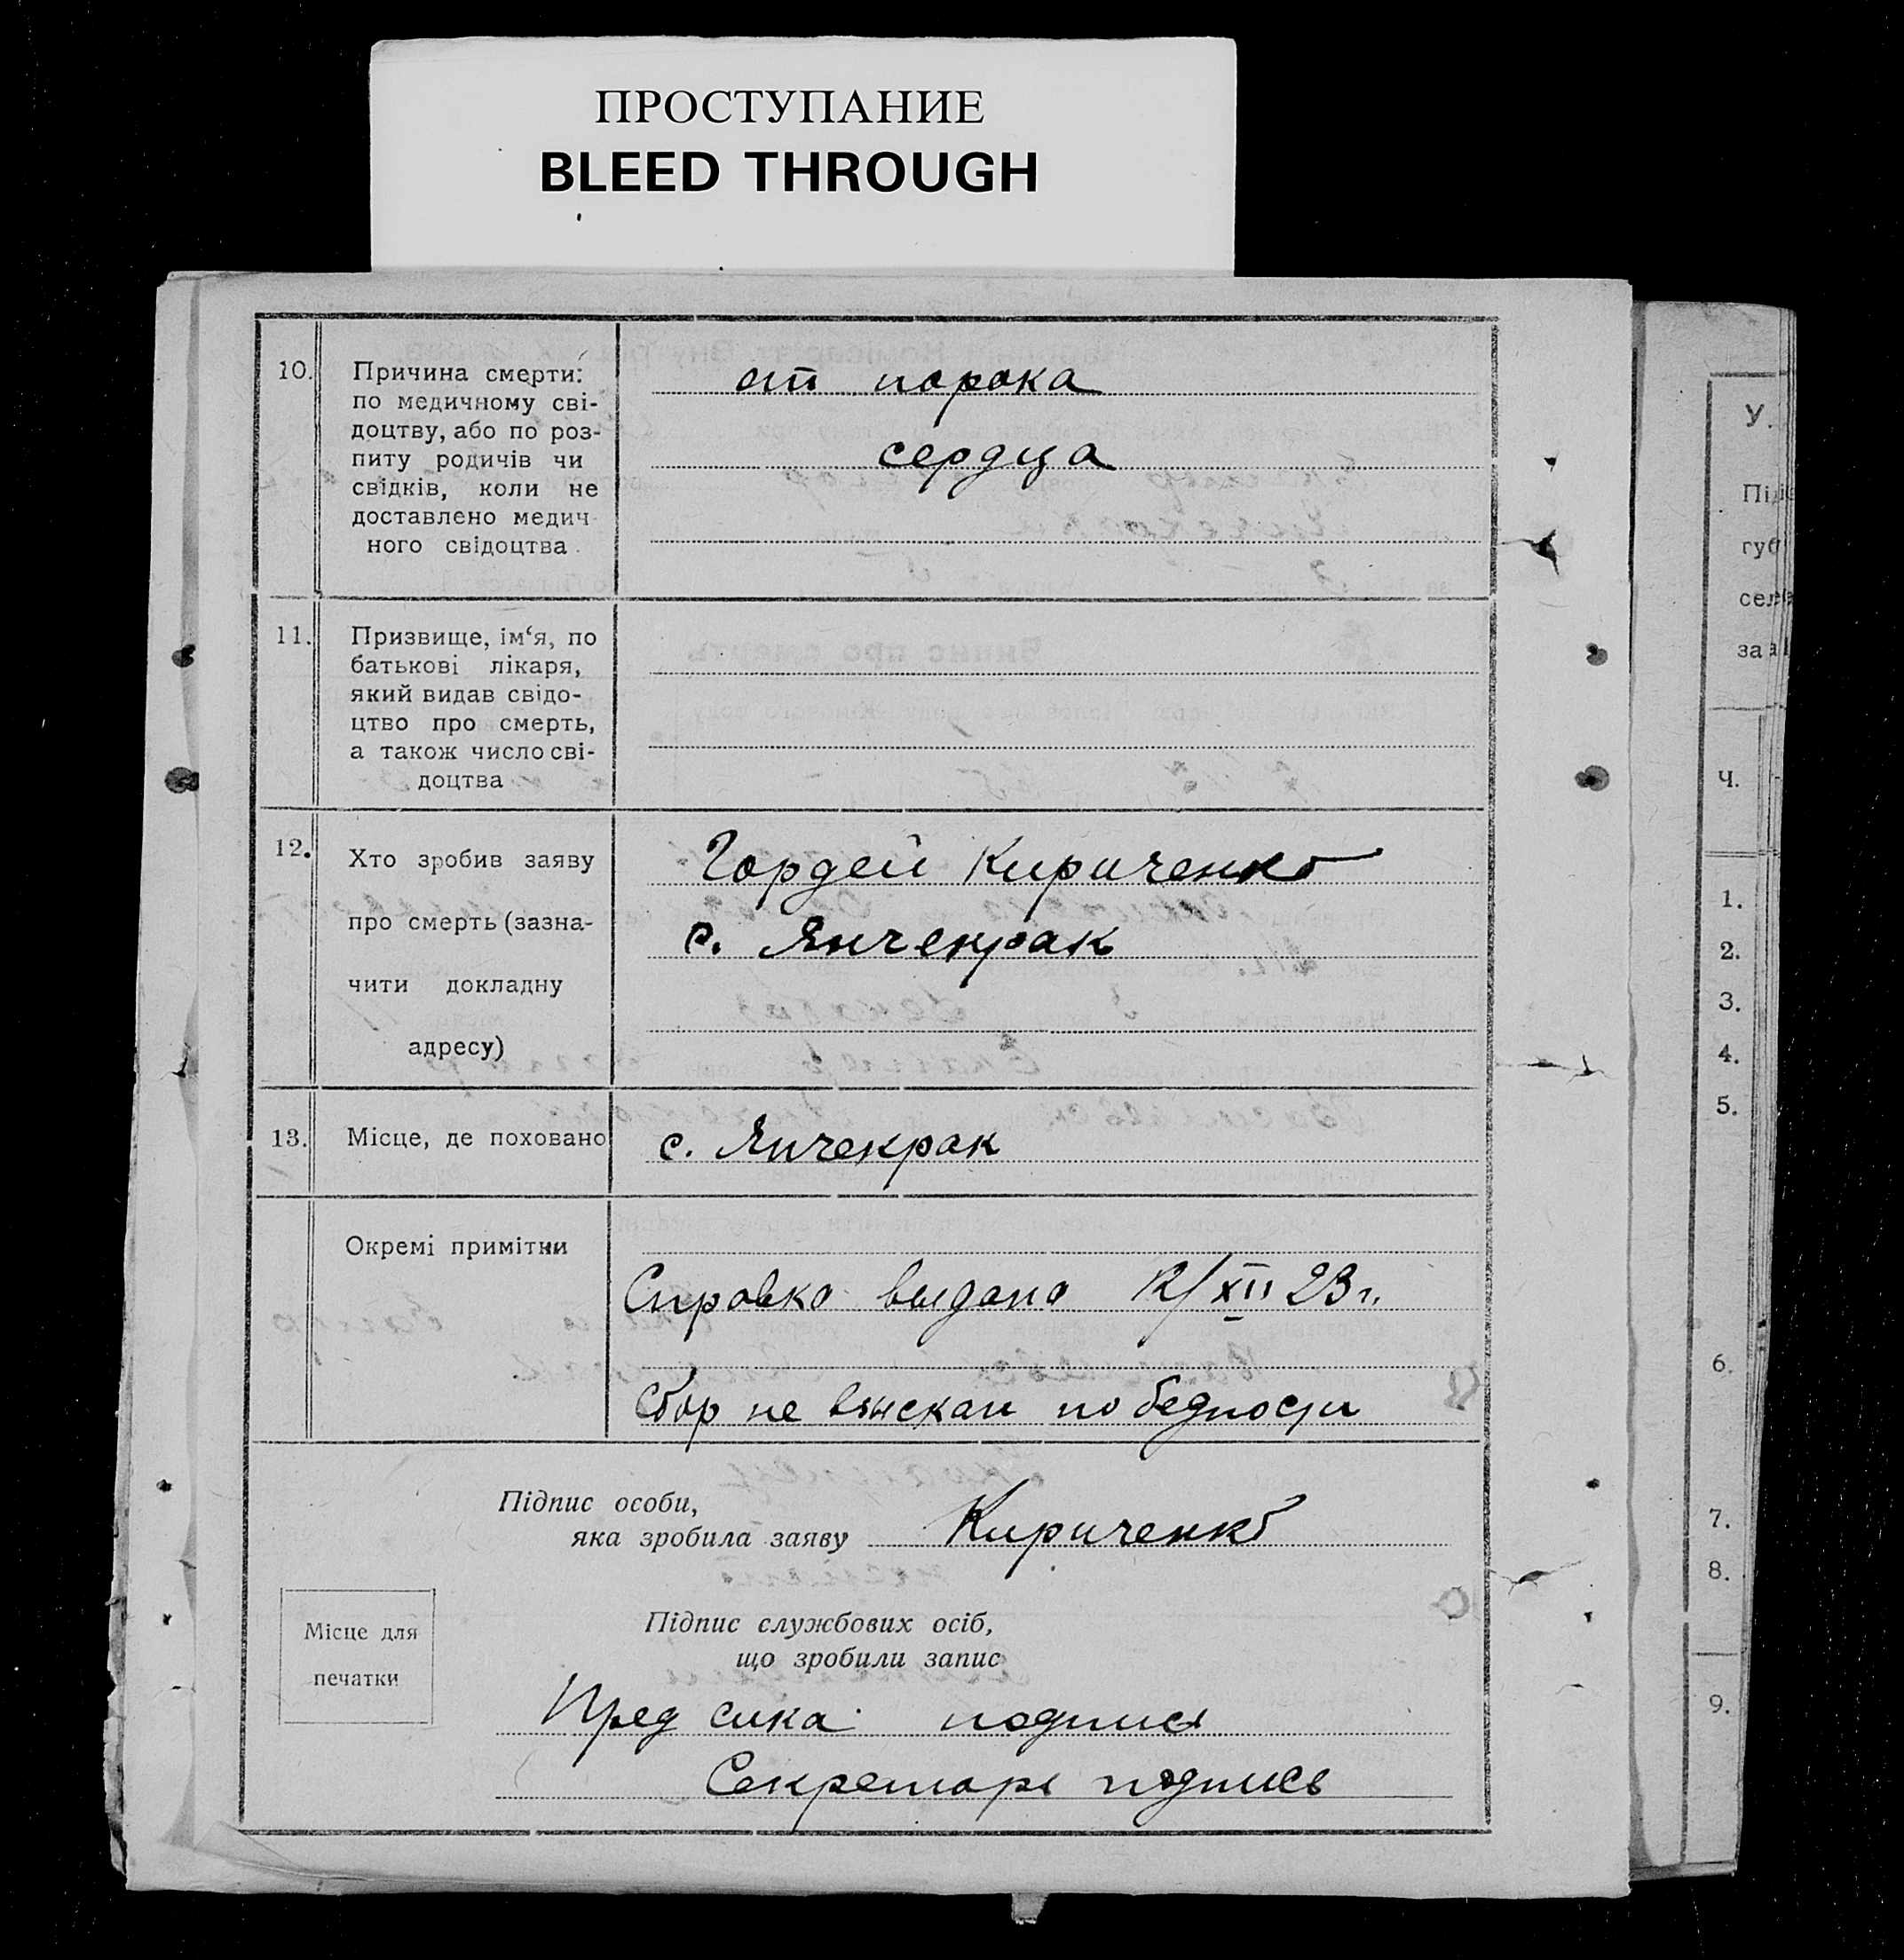 ПРОСТУПАНИЕ
BLEED THROUGH
10. Причина смерти:
по медичному сві-
доцтву, або по роз-
питу родичів чи
свідків, коли не
доставлено медич
ного свідоцтва
от порока
сердца
11. Призвище, ім‘я, по
батькові лікаря,
який видав свідо-
цтво про смерть,
а також число сві-
доцтва
12. Хто зробив заяву
про смерть (зазна-
чити докладну
адресу)
Гордей Кириченко
с. Янчекрак
13. Місце, де поховано
с. Янчекрак
Окремі примітки
Справка выдана 12/XII 23 г.
Сбор не взыскан по бедности
Підпис особи,
яка зробила заяву Кириченко
Місце для
печатки
Підпис службових осіб,
що зробили запис
Пред сика подпись
Секретарь подпись
У.
Під
губ
села
за
Ч.
1.
2.
3.
4.
5.
6.
7.
8.
9.